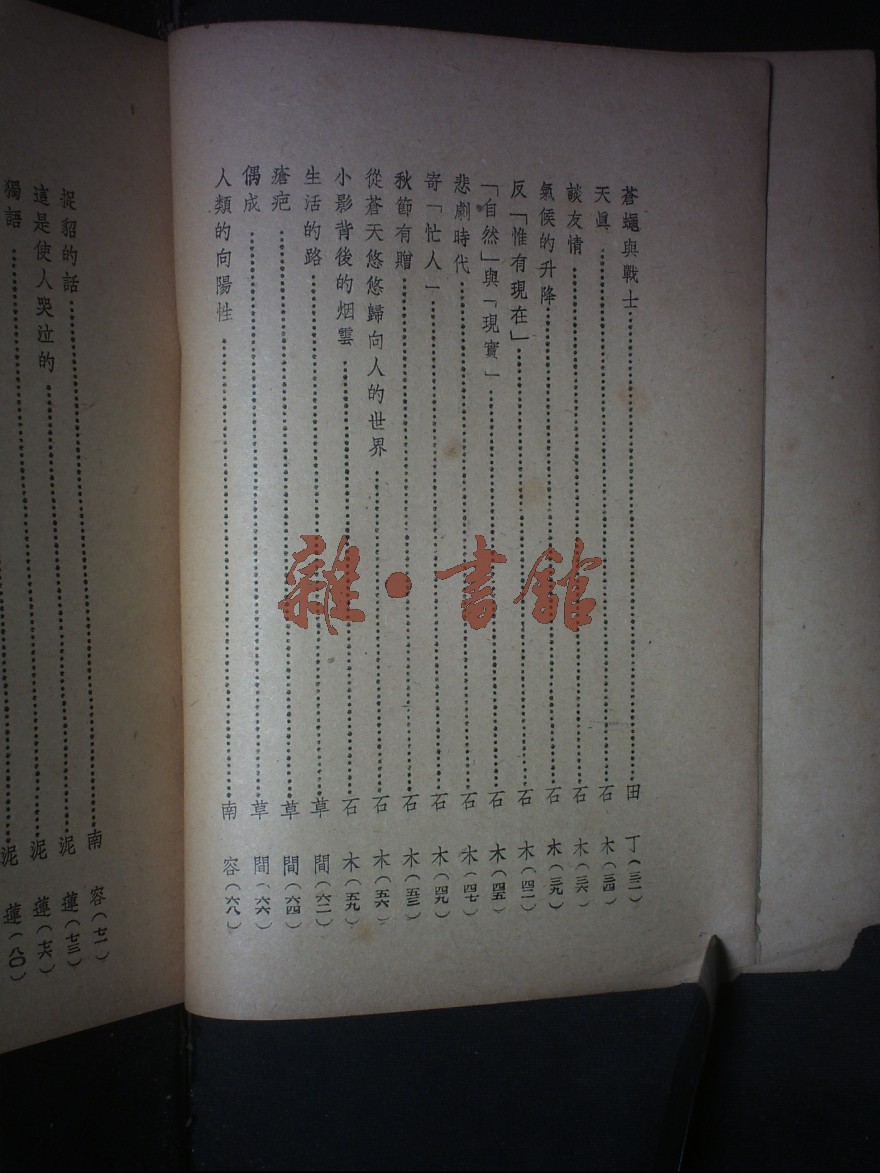 蒼蠅與戰士……田丁（三一）
天眞……石木（三四）
談友情……石木（三六）
氣候的升降……石木（三九）
反「惟有現在」……石木（四二）
「自然」與「現實」……石木（四五）
悲劇時代……石木（四七）
寄「忙人」……石木（四九）
秋節有贈……石木（五三）
從蒼天悠悠歸向人的世界……石木（五六）
小影背後的烟雲……石木（五九）
生活的路……草間（六二）
瘡疤……草間（六四）
偶成……草間（六六）
人類的向陽性……南容（六八）
捉貂的話……南容（七一）
這是使人哭泣的……泥蓮（七三）
獨語……泥蓮（七六）
泥蓮（八〇）
雜·書館